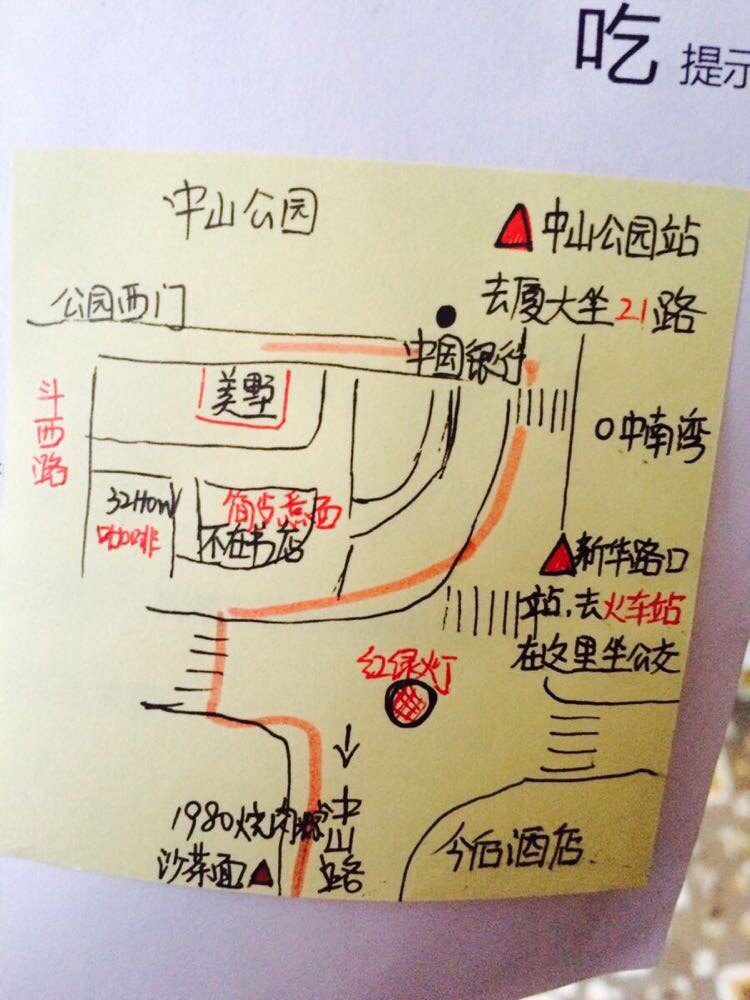 吃 提示
中山公园
中山公园站
去厦大坐21路
公园西门
中国银行
斗西路
美墅
中南湾
32How
咖啡
不在书店
新华路口
站,去火车站
在这里坐公交
红绿灯
1980烧肉粽
沙茶面
中山路
今佰酒店